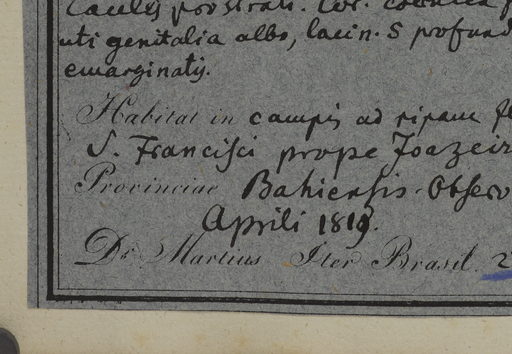 caulis prostrati. Cor. coerulea
uti genitalia alba, lacin. 5 profund
emarginatis.
Habitat in campis ad ripam fl
S. Francisci prope Joazeir
Provinciae Bahiensis. Observ
Aprili 1819.
Dr. Martius Iter Brasil. 2